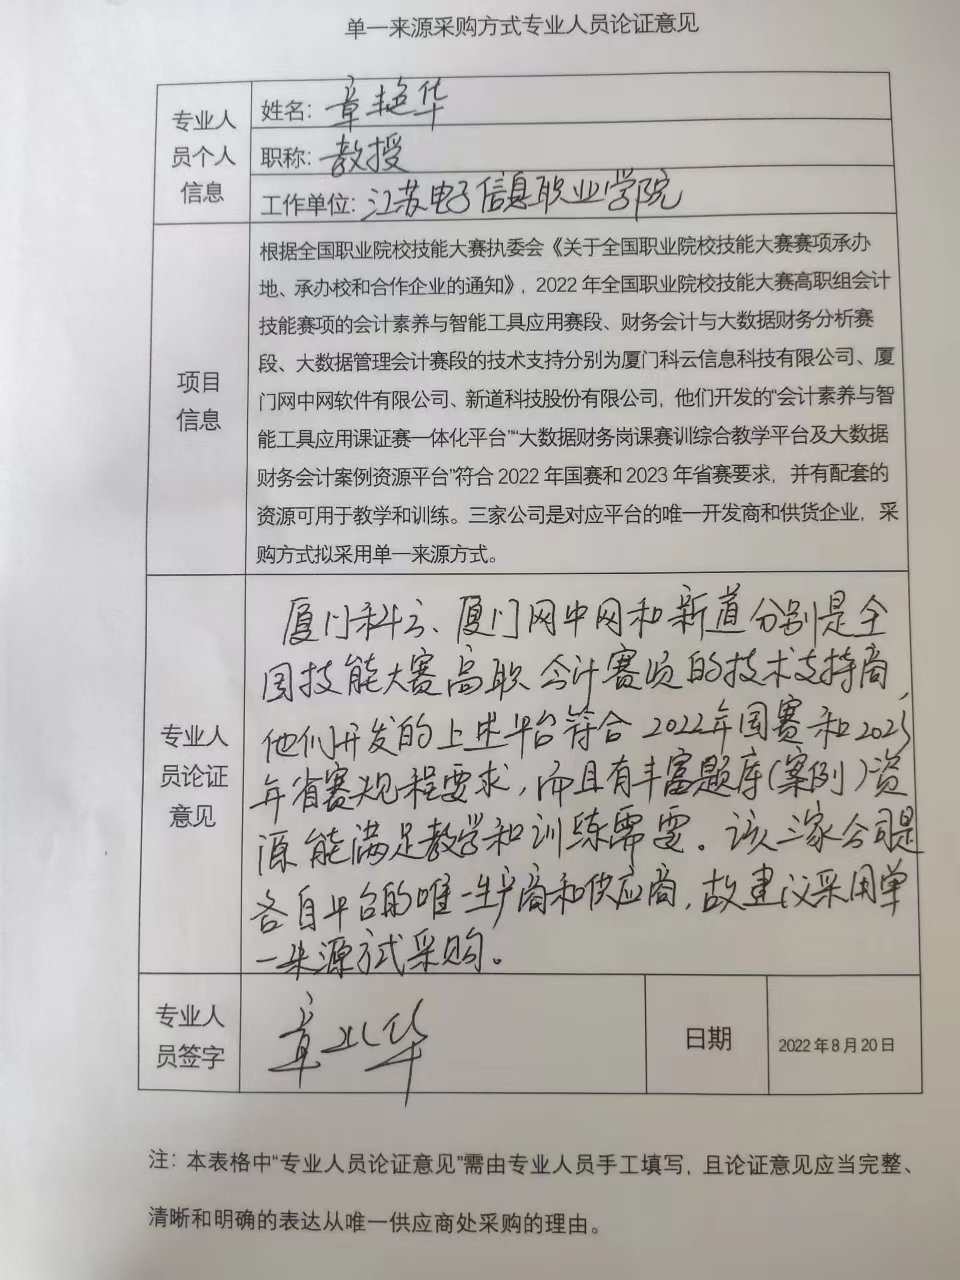 单一来源采购方式专业人员论证意见
专业人
员个人
信息
姓名：章艳华
职称：教授
工作单位：江苏电子信息职业学院
项目
信息
根据全国职业院校技能大赛执委会《关于全国职业院校技能大赛赛项承办
地、承办校和合作企业的通知》，2022年全国职业院校技能大赛高职组会计
技能赛项的会计素养与智能工具应用赛段、财务会计与大数据财务分析赛
段、大数据管理会计赛段的技术支持分别为厦门科云信息科技有限公司、厦
门网中网软件有限公司、新道科技股份有限公司，他们开发的“会计素养与智
能工具应用课证赛一体化平台”“大数据财务岗课赛训综合教学平台及大数据
财务会计案例资源平台”符合2022年国赛和2023年省赛要求，并有配套的
资源可用于教学和训练。三家公司是对应平台的唯一开发商和供货企业，采
购方式拟采用单一来源方式。
专业人
员论证
意见
厦门科云、厦门网中网和新道分别是全
国技能大赛高职会计赛项的技术支持商，
他们开发的上述平台符合2022年国赛和2023
年省赛规程要求，而且有丰富题库（案例）资
源能满足教学和训练需要。该三家公司是
各自平台的唯一生产商和供应商，故建议采用单
一来源方式采购。
专业人
员签字
章艳华
日期
2022年8月20日
注：本表格中“专业人员论证意见”需由专业人员手工填写，且论证意见应当完整、
清晰和明确的表达从唯一供应商处采购的理由。